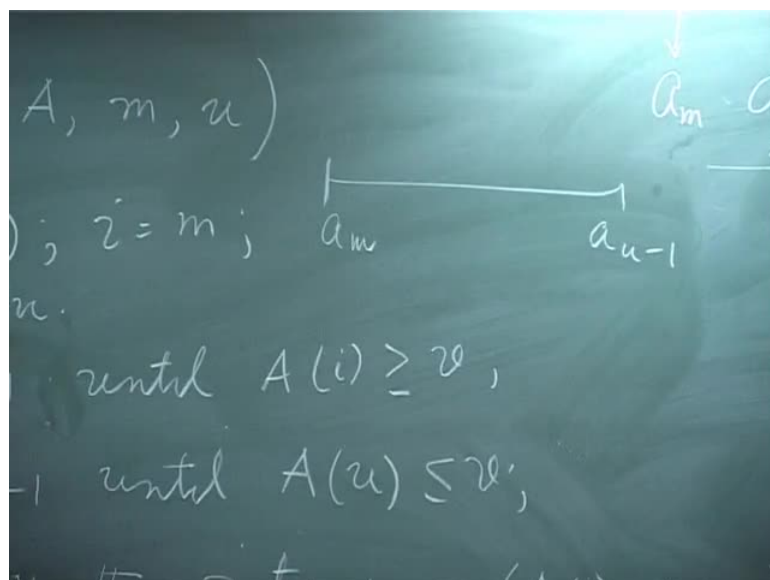 A, m, u)
a_m
); i = m; a_m a_{u-1}
u.
until A(i) ≥ v,
-1 until A(u) ≤ v;